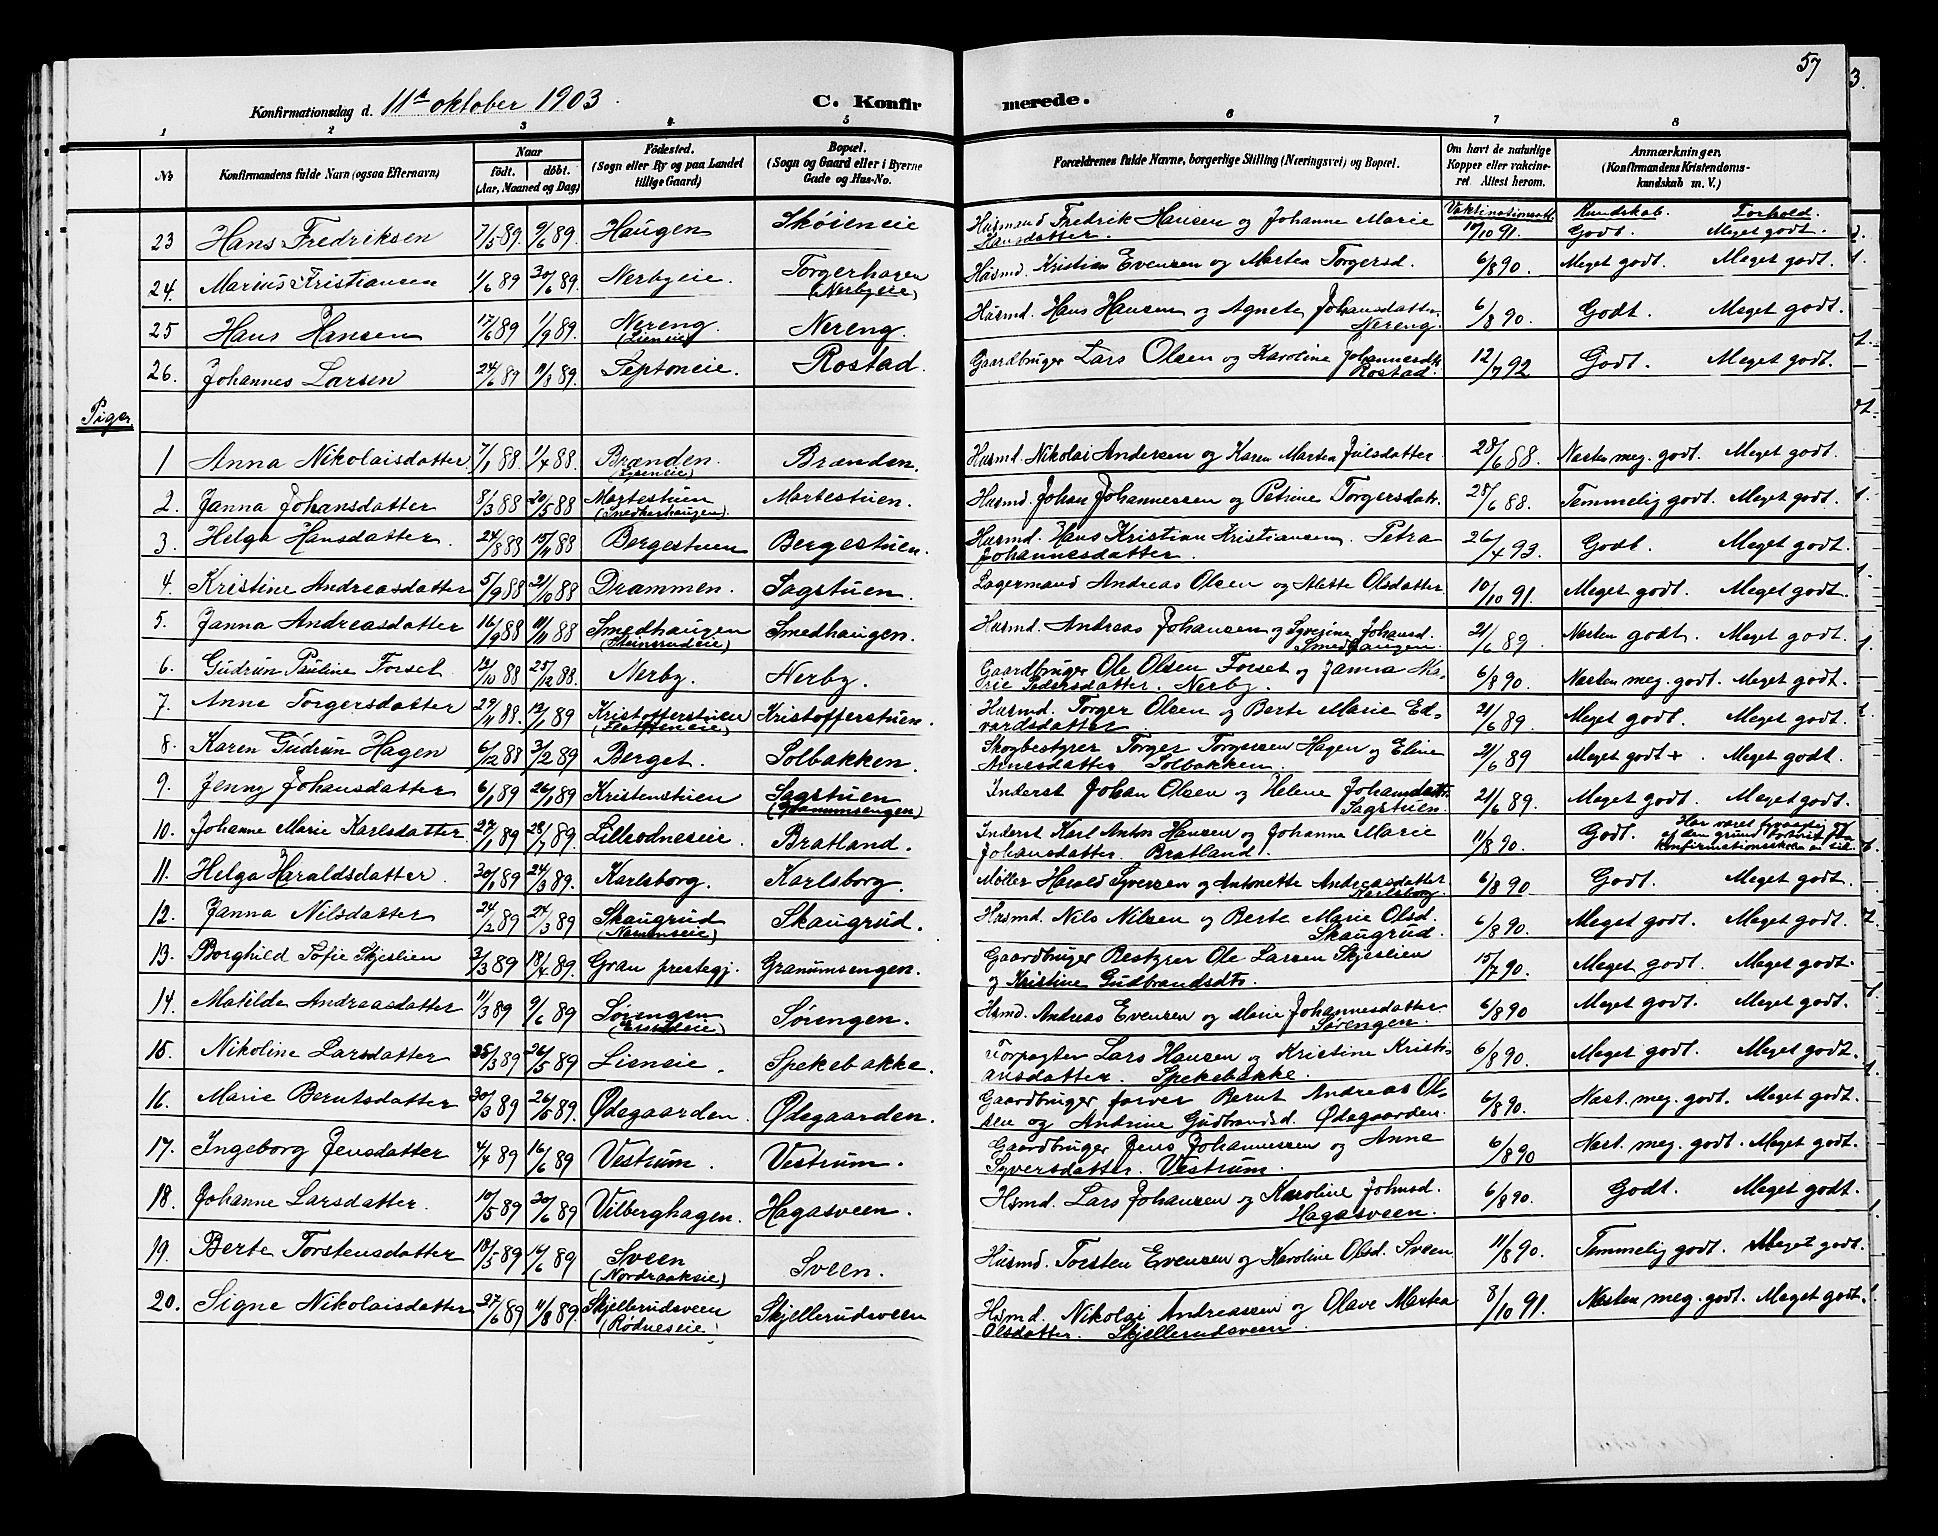 57
3.
Konfirmationsdag d. 11te oktober 1903.
C. Konfirmerede.
1 2 3 4 5 6 7 8
No
Konfirmandens fulde Navn (ogsaa Efternavn)
Naar
født. døbt.
(Aar, Maaned og Dag)
Fødested.
(Sogn eller By og paa Landet
tillige Gaard)
Bopæl.
(Sogn og Gaard eller i Byerne
Gade og Hus-No.
Forældrenes fulde Navne, borgerlige Stilling (Næringsvei) og Bopæl.
Om havt de naturlige
Kopper eller vakcine-
ret. Attest herom.
Anmærkninger.
(Konfirmandens Kristendoms-
kundskab m. V.)
Vaktinationsatt. Kundskab. Forhold.
23 Hans Fredriksen 7/5 89. 9/6 89. Haugen Skøieneie Husmand Fredrik Hansen og Johanne Marie Hansdatter. 10/10 91. Godt. Meget godt.
24. Marius Kristiansen 1/6 89 30/6 89. Nerbyeie. Torgerhagen (Nerbyeie) Husmd. Kristian Evensen og Martea Torgersd. 6/8 90. Meget godt. Meget godt.
25 Hans Hansen 17/6 89 1/9 89. Nereng. (Lieneie) Nereng. Husmd. Hans Hansen og Agnete Johansdatter Nereng. 6/8 90. Godt. Meget godt.
26. Johannes Larsen 24/6 89 11/8 89. Septoneie. Rostad. Gaardbruger Lars Olsen og Karoline Johannesdtr Rostad. 12/7 92 Godt. Meget godt.
Piger
1 Anna Nikolaisdatter 7/1 88. 1/4 88. Brænden. Brænden. Husmd. Nikolai Andersen og Karen Martea Julsdatter. 28/6 88. Næsten meg. godt. Meget godt.
2. Janna Johansdatter 8/3 88 20/5 88 Martestuen (Snekkerhaugen). Martestuen. Husmd. Johan Johannessen og Petrine Torgersdatr. 28/6 88. Temmelig godt. Meget godt.
3. Helga Hansdatter. 24/8 88 15/11 88 Bergestuen Bergestuen. Husmd. Hans Kristian Kristiansen. Petra Johannesdatter. 26/4 93. Godt. Meget godt.
4. Kristine Andreasdatter 5/9 88 21/10 88 Drammen. Sagstuen. Lagermand Andreas Olsen og Mette Olsdatter. 10/10 91. Meget godt. Meget godt.
5. Janna Andreasdatter 16/9 88 11/11 88 Smedhaugen Smedhaugen. Husmd. Andreas Johansen og Syverine Johansd. Smedhaugen. 21/6 89 Næsten godt. Meget godt.
6. Gudrun Pauline Forset 12/10 88 25/12 88. Nerby. Nerby. Gaardbruger Ole Olsen Forset og Janna Marie Pedersdatter. Nerby. 6/8 90. Næsten meg. godt. Meget godt.
7. Anne Torgersdatter 29/11 88. 13/1 89 Kristofferstuen Kristofferstuen. Husmd. Torger Olsen og Berte Marie Edvardsdatter 21/6 89. Meget godt. Meget godt.
8. Karen Gudrun Hagen 6/12 88 3/2 89 Berget. Solbakken. Skogbestyrer Torger Torgersen Hagen og Eline Arnesdatter Solbakken. 21/6 89 Meget godt +. Meget godt.
9. Jenny Johansdatter 6/1 89 26/1 89. Kristenstuen Sagstuen (Granumsengen) Inderst Johan Olsen og Helene Johansdatter Sagstuen. 21/6 89. Meget godt. Meget godt.
10. Johanne Marie Karlsdatter. 27/1 89 28/7 89. Lillerodneseie. Bratland. Inderst Karl Anton Hansen og Johanne Marie Johansdatter. Bratland. 11/8 90. Godt. Har været og af den grund fra konfirmationsskolen en tid.
11. Helga Haraldsdatter. 30/1 89 24/3 89. Karlsborg. Karlsborg. Møller Harald Syversen og Antonette Andreasdatter Karlsborg. 6/8 90 Godt. Meget godt.
12. Janna Nilsdatter 24/2 89 24/3 89 Skaugrud Skaugrud. Husmd. Nils Nilsen og Berte Marie Olsd. Skaugrud. 6/8 90. Meget godt. Meget godt.
13. Borghild Sofie Skjeslien 3/3 89 18/4 89. Gran prestegj. Granumsengen. Gaardbruger Bestyrer Ole Larsen Skjeslien og Kristine Gudbrandsdtr. 15/7 90. Meget godt. Meget godt.
14. Matilde Andreasdatter 11/3 89 9/6 89 Sørengen Sørengen. Hsmd. Andreas Evensen og Marie Johannesdatter. Sørengen. 6/8 90 Meget godt. Meget godt.
15. Nikoline Larsdatter 25/3 89 26/5 89. Lieneie. Spekebakke. Forpagter Lars Hansen og Kristine Kristiansdatter. Spekebakke. 6/8 90. Meget godt. Meget godt.
16. Marie Berntsdatter 30/3 89 26/5 89. Ødegaarden. Ødegaarden. Gaardbruger forver Bernt Andreas Olsen og Andrine Gudbrandsd. Ødegaarden. 6/8 90. Næst. meg. godt. Meget godt.
17. Ingeborg Jensdatter 4/4 89 16/6 89 Vestrum. Vestrum. Gaardbruger Jens Johannessen og Anna Syversdatter. Vestrum. 6/8 90 Næst. meg. godt. Meget godt.
18. Johanne Larsdatter. 10/5 89 30/6 89 Vilberghagen. Hagasveen. Hsmd. Lars Johansen og Karoline Johnsd. Hagasveen. 6/8 90. Godt. Meget godt.
19. Berte Torstensdatter 18/5 89 16/6 89 Sveen (Nordraakeie) Sveen. Husmd. Torsten Evensen og Karoline Olsd. Sveen 11/8 90. Temmelig godt. Meget godt.
20. Signe Nikolaisdatter 27/6 89 11/8 89. Skjellerudsveen (Rødneseie) Skjellerudsveen Hsmd. Nikolai Andreassen og Olave Martea Olsdatter. Skjellerudsveen. 8/10 91. Næsten meg. godt. Meget godt.